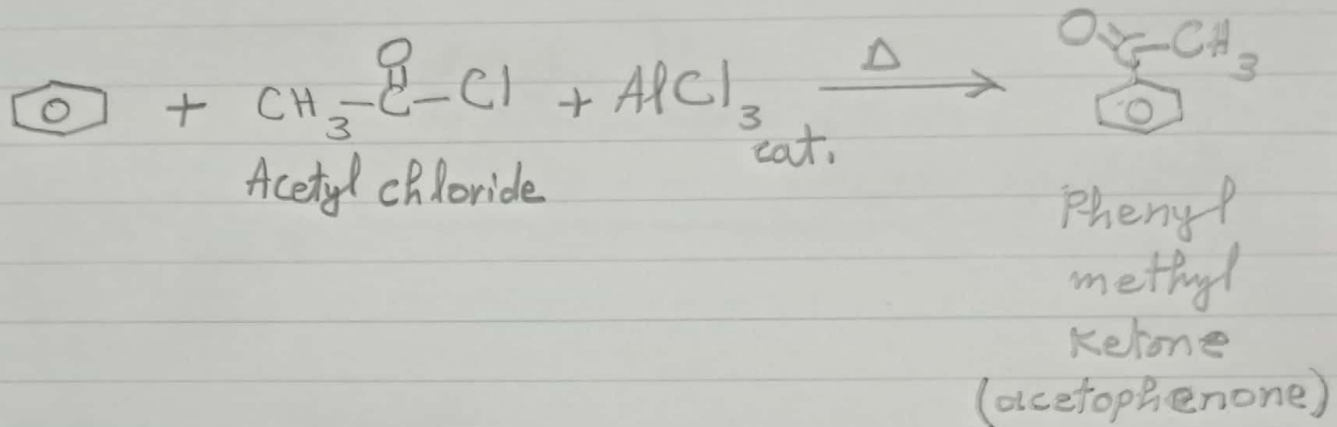 O C-CH3
+ CH3-C-Cl + AlCl3 Δ
O
cat.
Acetyl chloride
Phenyl
methyl
Ketone
(acetophenone)